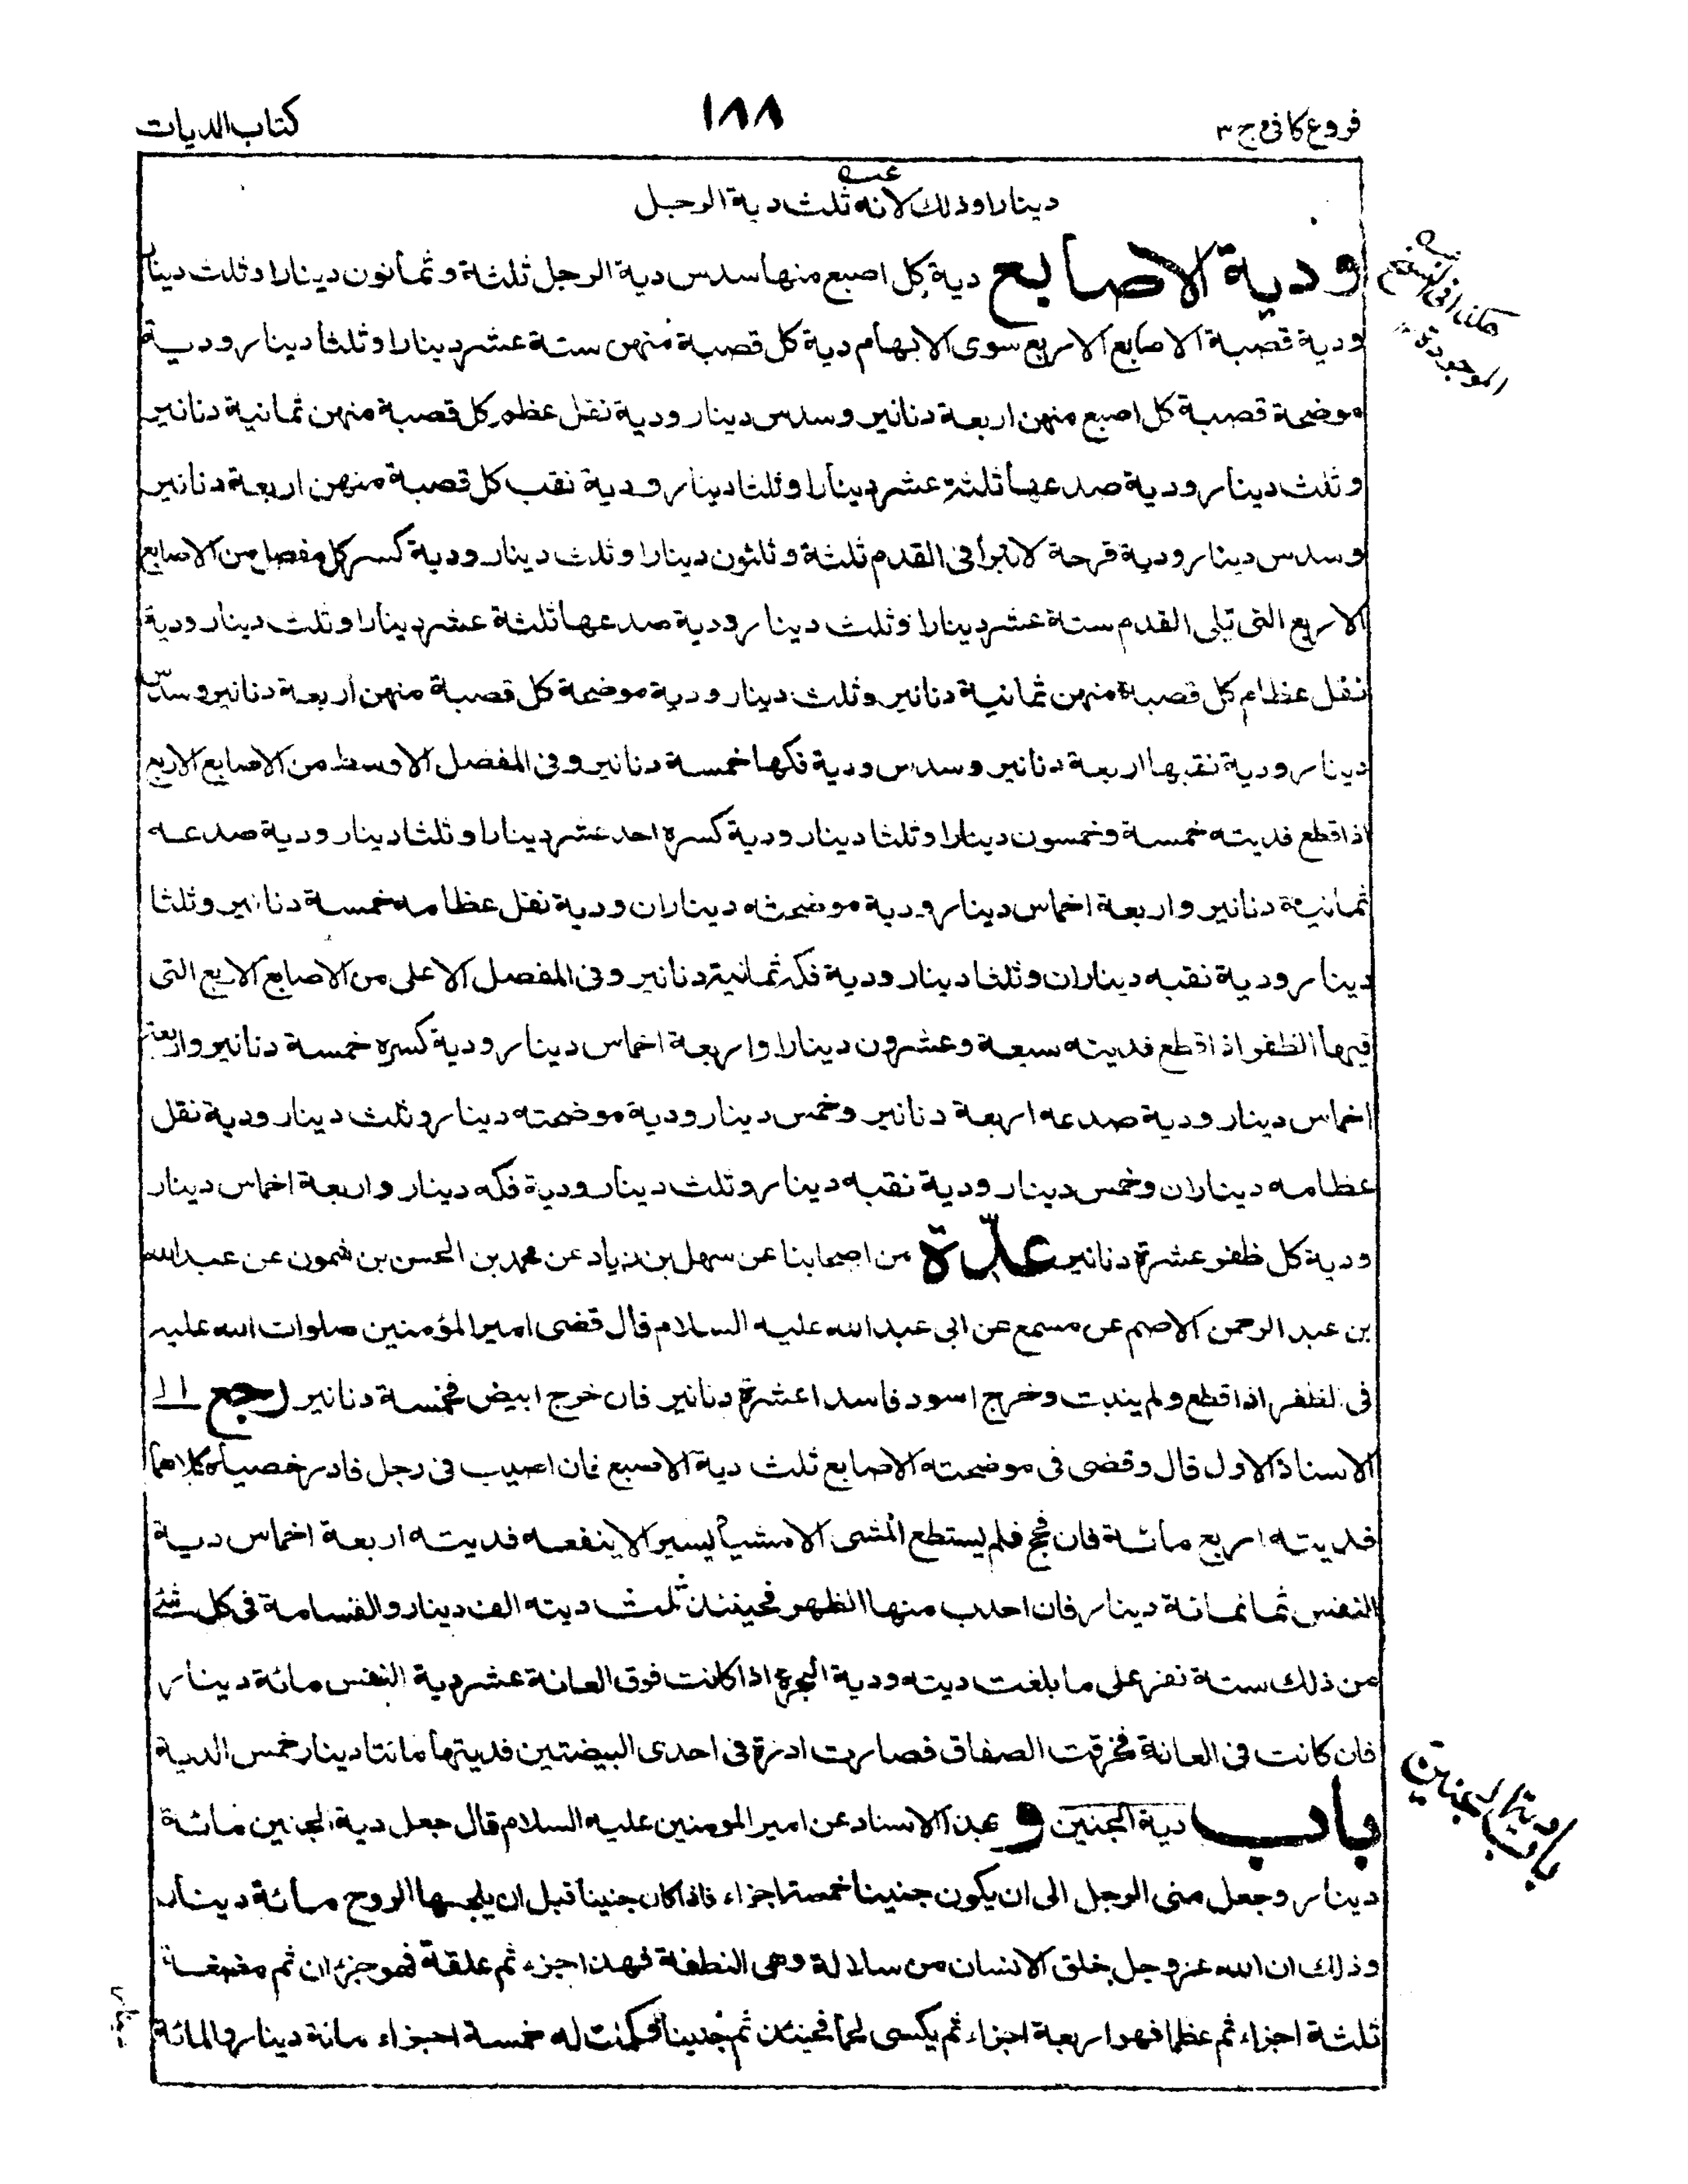 فروع كافى ج ٣
١٨٨
كتاب الديات
دينارا وذلك لانه ثلث دية الرجل
ودية الاصابع دية كل اصبع منها سدس دية الرجل ثلثة وثمانون دينارا وثلث دينار
ودية قصبة الاصابع الاربع سوى الابهام دية كل قصبة منهن ستة عشر دينارا وثلثا دينار ودية
موضحة قصبة كل اصبع منهن اربعة دنانير وسدس دينار ودية نقل عظم كل قصبة منهن ثمانية دنانير
وثلث دينار ودية صدعها ثلثة عشر دينارا وثلثا دينار ودية نقب كل قصبة منهن اربعة دنانير
وسدس دينار ودية قرحة لا تبرأ فى القدم ثلثة وثلثون دينارا وثلث دينار ودية كسر كل مفصل من الاصابع
الاربع التى تلى القدم ستة عشر دينارا وثلث دينار ودية صدعها ثلثة عشر دينارا وثلث دينار ودية
نقل عظام كل قصبة منهن ثمانية دنانير وثلث دينار ودية موضحة كل قصبة منهن اربعة دنانير وسدس
دينار ودية نقبها اربعة دنانير وسدس ودية فكها خمسة دنانير وفى المفصل الاوسط من الاصابع الاربع
اذا قطع فديته خمسة وخمسون دينارا وثلثا دينار ودية كسره احد عشر دينارا وثلثا دينار ودية صدعه
ثمانية دنانير واربعة اخماس دينار ودية موضحته ديناران ودية نقل عظامه خمسة دنانير وثلثا
دينار ودية نقبه ديناران وثلثا دينار ودية فكه ثمانية دنانير وفى المفصل الاعلى من الاصابع الاربع التى
فيها الظفر اذا قطع فديته سبعة وعشرون دينارا واربعة اخماس دينار ودية كسره خمسة دنانير واربعة
اخماس دينار ودية صدعه اربعة دنانير وخمس دينار ودية موضحته دينار وثلث دينار ودية نقل
عظامه ديناران وخمس دينار ودية نقبه دينار وثلث دينار ودية فكه دينار واربعة اخماس دينار
ودية كل ظفر عشرة دنانير عدّة من اصحابنا عن سهل بن زياد عن محمد بن الحسن بن شمون عن عبد الله
بن عبد الرحمن الاصم عن مسمع عن ابى عبد الله عليه السلام قال قضى امير المؤمنين صلوات الله عليه
فى الظفر اذا قطع ولم ينبت وخرج اسود فاسدا عشرة دنانير فان خرج ابيض فخمسة دنانير رجع الى
الاسناد الاول قال وقضى فى موضحته الاصابع ثلث دية الاصبع فان اصيب فى رجل فادر خصياه كلاهما
فديته اربع مائة فان فحج فلم يستطع المشى الا مشيا يسيرا لا ينفعه فديته اربعة اخماس دية
النفس ثمانمائة دينار فان احدب منها الظهر فحينئذ ثمت ديته الف دينار والقسامة فى كل شئ
من ذلك ستة نفر على ما بلغت ديته ودية البجرة اذا كانت فوق العانة عشر دية النفس مائة دينار
فان كانت فى العانة فخرقت الصفاق فصارت ادرة فى احدى البيضتين فديتها مائتا دينار خمس الدية
باب دية الجنين وبهذا الاسناد عن امير المومنين عليه السلام قال جعل دية الجنين مائة
دينار وجعل منى الرجل الى ان يكون جنينا خمسة اجزاء فاذا كان جنينا قبل ان يلجها الروح مائة دينار
وذلك ان الله عز وجل خلق الانسان من سلالة وهى النطفة فهذا جزء ثم علقة فهو جزءان ثم مضغة
ثلثة اجزاء ثم عظما فهو اربعة اجزاء ثم يكسى لحما فحينئذ ثم جنينا فكملت له خمسة اجزاء مائة دينار والمائة
هكذا فى النسخ
الموجودة
باب دية الجنين